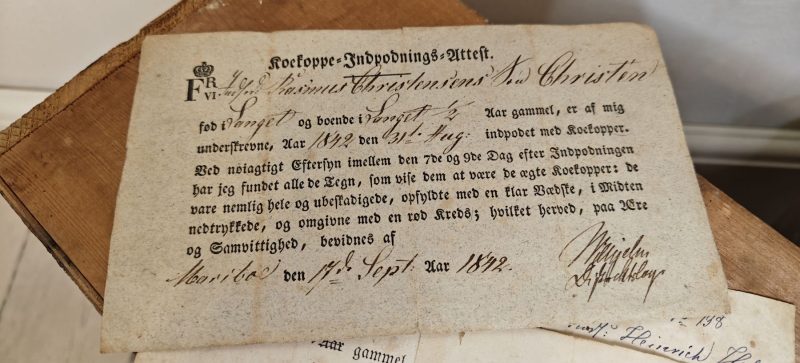 Kockoppe-Indpodnings-Attest.
F R VI. Rasmus Christensens Søn Christen
fød i Sanget og boende i Sanget 1/2 Aar gammel, er af mig
underskrevne, Aar 1842 den 31t Aug: indpodet med Kockopper.
Ved nøiagtigt Eftersyn imellem den 7de og 9de Dag efter Indpodningen
har jeg fundet alle de Tegn, som vise dem at være de ægte Kockopper: de
vare nemlig hele og ubeskadigede, opfyldte med en klar Vædske, i Midten
nedtrykkede, og omgivne med en rød Kreds; hvilket herved, paa Ære
og Samvittighed, bevidnes af
Mariboe den 17de Sept: Aar 1842.
Heinrich
Aar gammel